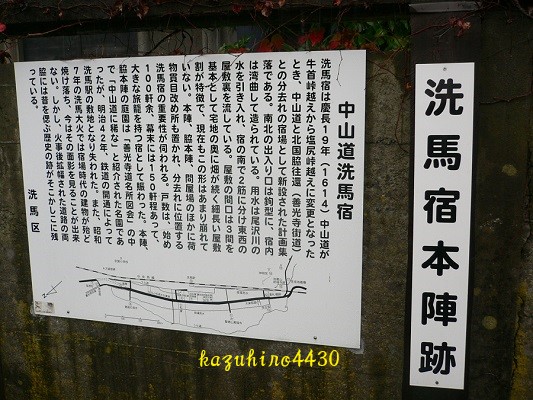 中山道洗馬宿
洗馬宿は慶長19年(1614)中山道が
牛首峠越えから塩尻峠越えに変更となった
とき、中山道と北国脇往還(善光寺街道)
との分去れの宿場として新設された計画集
落である。南北の出入り口は鉤型に、宿内
は湾曲して造られている。用水は尾沢川の
水を引き入れ、宿の南で2筋に分け東西の
屋敷裏を流している。屋敷の間口は3間を
基本として宅地の奥に畑が続く細長い屋敷
割が特徴で、現在もこの形はあまり崩れて
いない。本陣、脇本陣、問屋場のほかに荷
物貫目改め所も置かれ、分去れに位置する
洗馬宿の重要性が伺われる。戸数は、始め
100軒余、幕末には150軒程あって、
大きな旅籠を持つ宿として賑わった。本陣、
脇本陣の庭園は「善光寺道名所図会」の中
で「中山道に稀な」と紹介された名園であ
ったが、明治42年、鉄道の開通によって
洗馬駅の敷地となり失われた。また、昭和
7年の洗馬大火では宿場時代の建物が殆ど
焼け落ち、今はその面影を見ることが出来
ない。しかし、火事後拡幅された道路の両
脇には昔を偲ぶ歴史の跡がそこかしこに残
っている。
洗馬区
洗馬宿本陣跡
kazuhiro4430